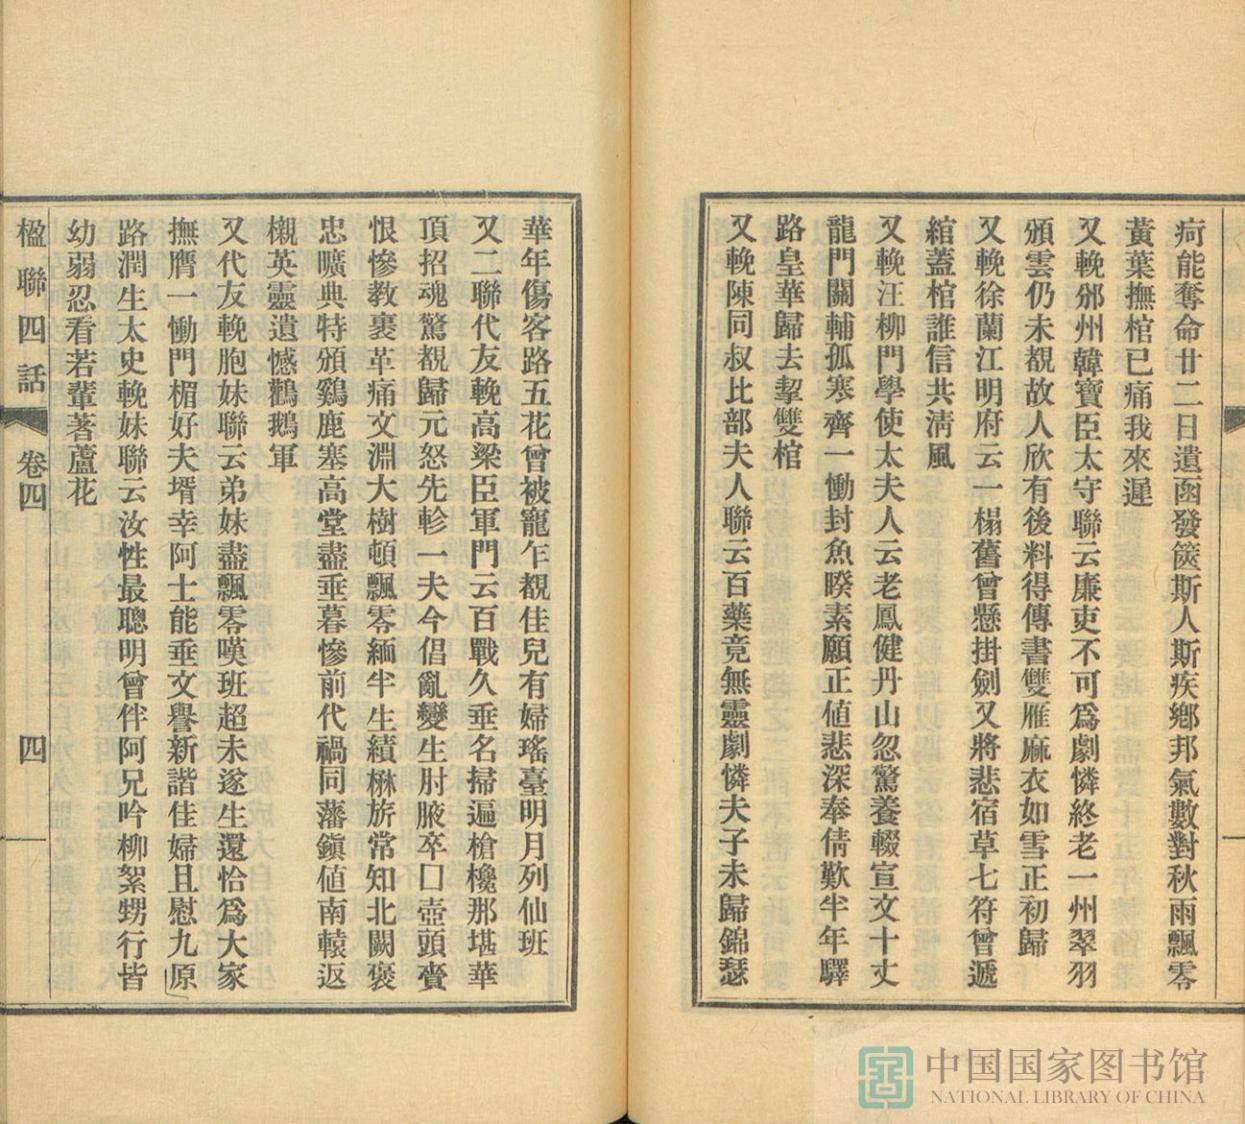 疴能奪命廿二日遺函發篋斯人斯疾鄉邦氣數對秋雨飄零
黃葉撫棺已痛我來遲
又輓邠州韓寶臣太守聯云廉吏不可爲劇憐終老一州翠羽
頒雲仍未覩故人欣有後料得傳書雙雁麻衣如雪正初歸
又輓徐蘭江明府云一榻舊曾懸掛劍又將悲宿草七符曾遞
綰蓋棺誰信共淸風
又輓汪柳門學使太夫人云老鳳健丹山忽驚養輟宣文十丈
龍門關輔孤寒齊一慟封魚暌素願正値悲深奉倩歎半年驛
路皇華歸去挈雙棺
又輓陳同叔比部夫人聯云百藥竟無靈劇憐夫子未歸錦瑟
華年傷客路五花曾被寵乍覩佳兒有婦瑤臺明月列仙班
又二聯代友輓高梁臣軍門云百戰久垂名掃遍槍欃那堪華
頂招魂驚覩歸元怒先軫一夫今倡亂變生肘腋卒囗壺頭賫
恨慘教裹革痛文淵大樹頓飄零緬半生績楙旂常知北闕褒
忠曠典特頒鷄鹿塞高堂盡垂暮慘前代禍同藩鎭値南轅返
櫬英靈遺憾鸛鵝軍
又代友輓胞妹聯云弟妹盡飄零嘆班超未遂生還恰爲大家
撫膺一慟門楣好夫壻幸阿士能垂文譽新諧佳婦且慰九原
路潤生太史輓妹聯云汝性最聰明曾伴阿兄吟柳絮甥行皆
幼弱忍看若輩著蘆花
楹聯四話 卷四 四
中国国家图书馆
NATIONAL LIBRARY OF CHINA